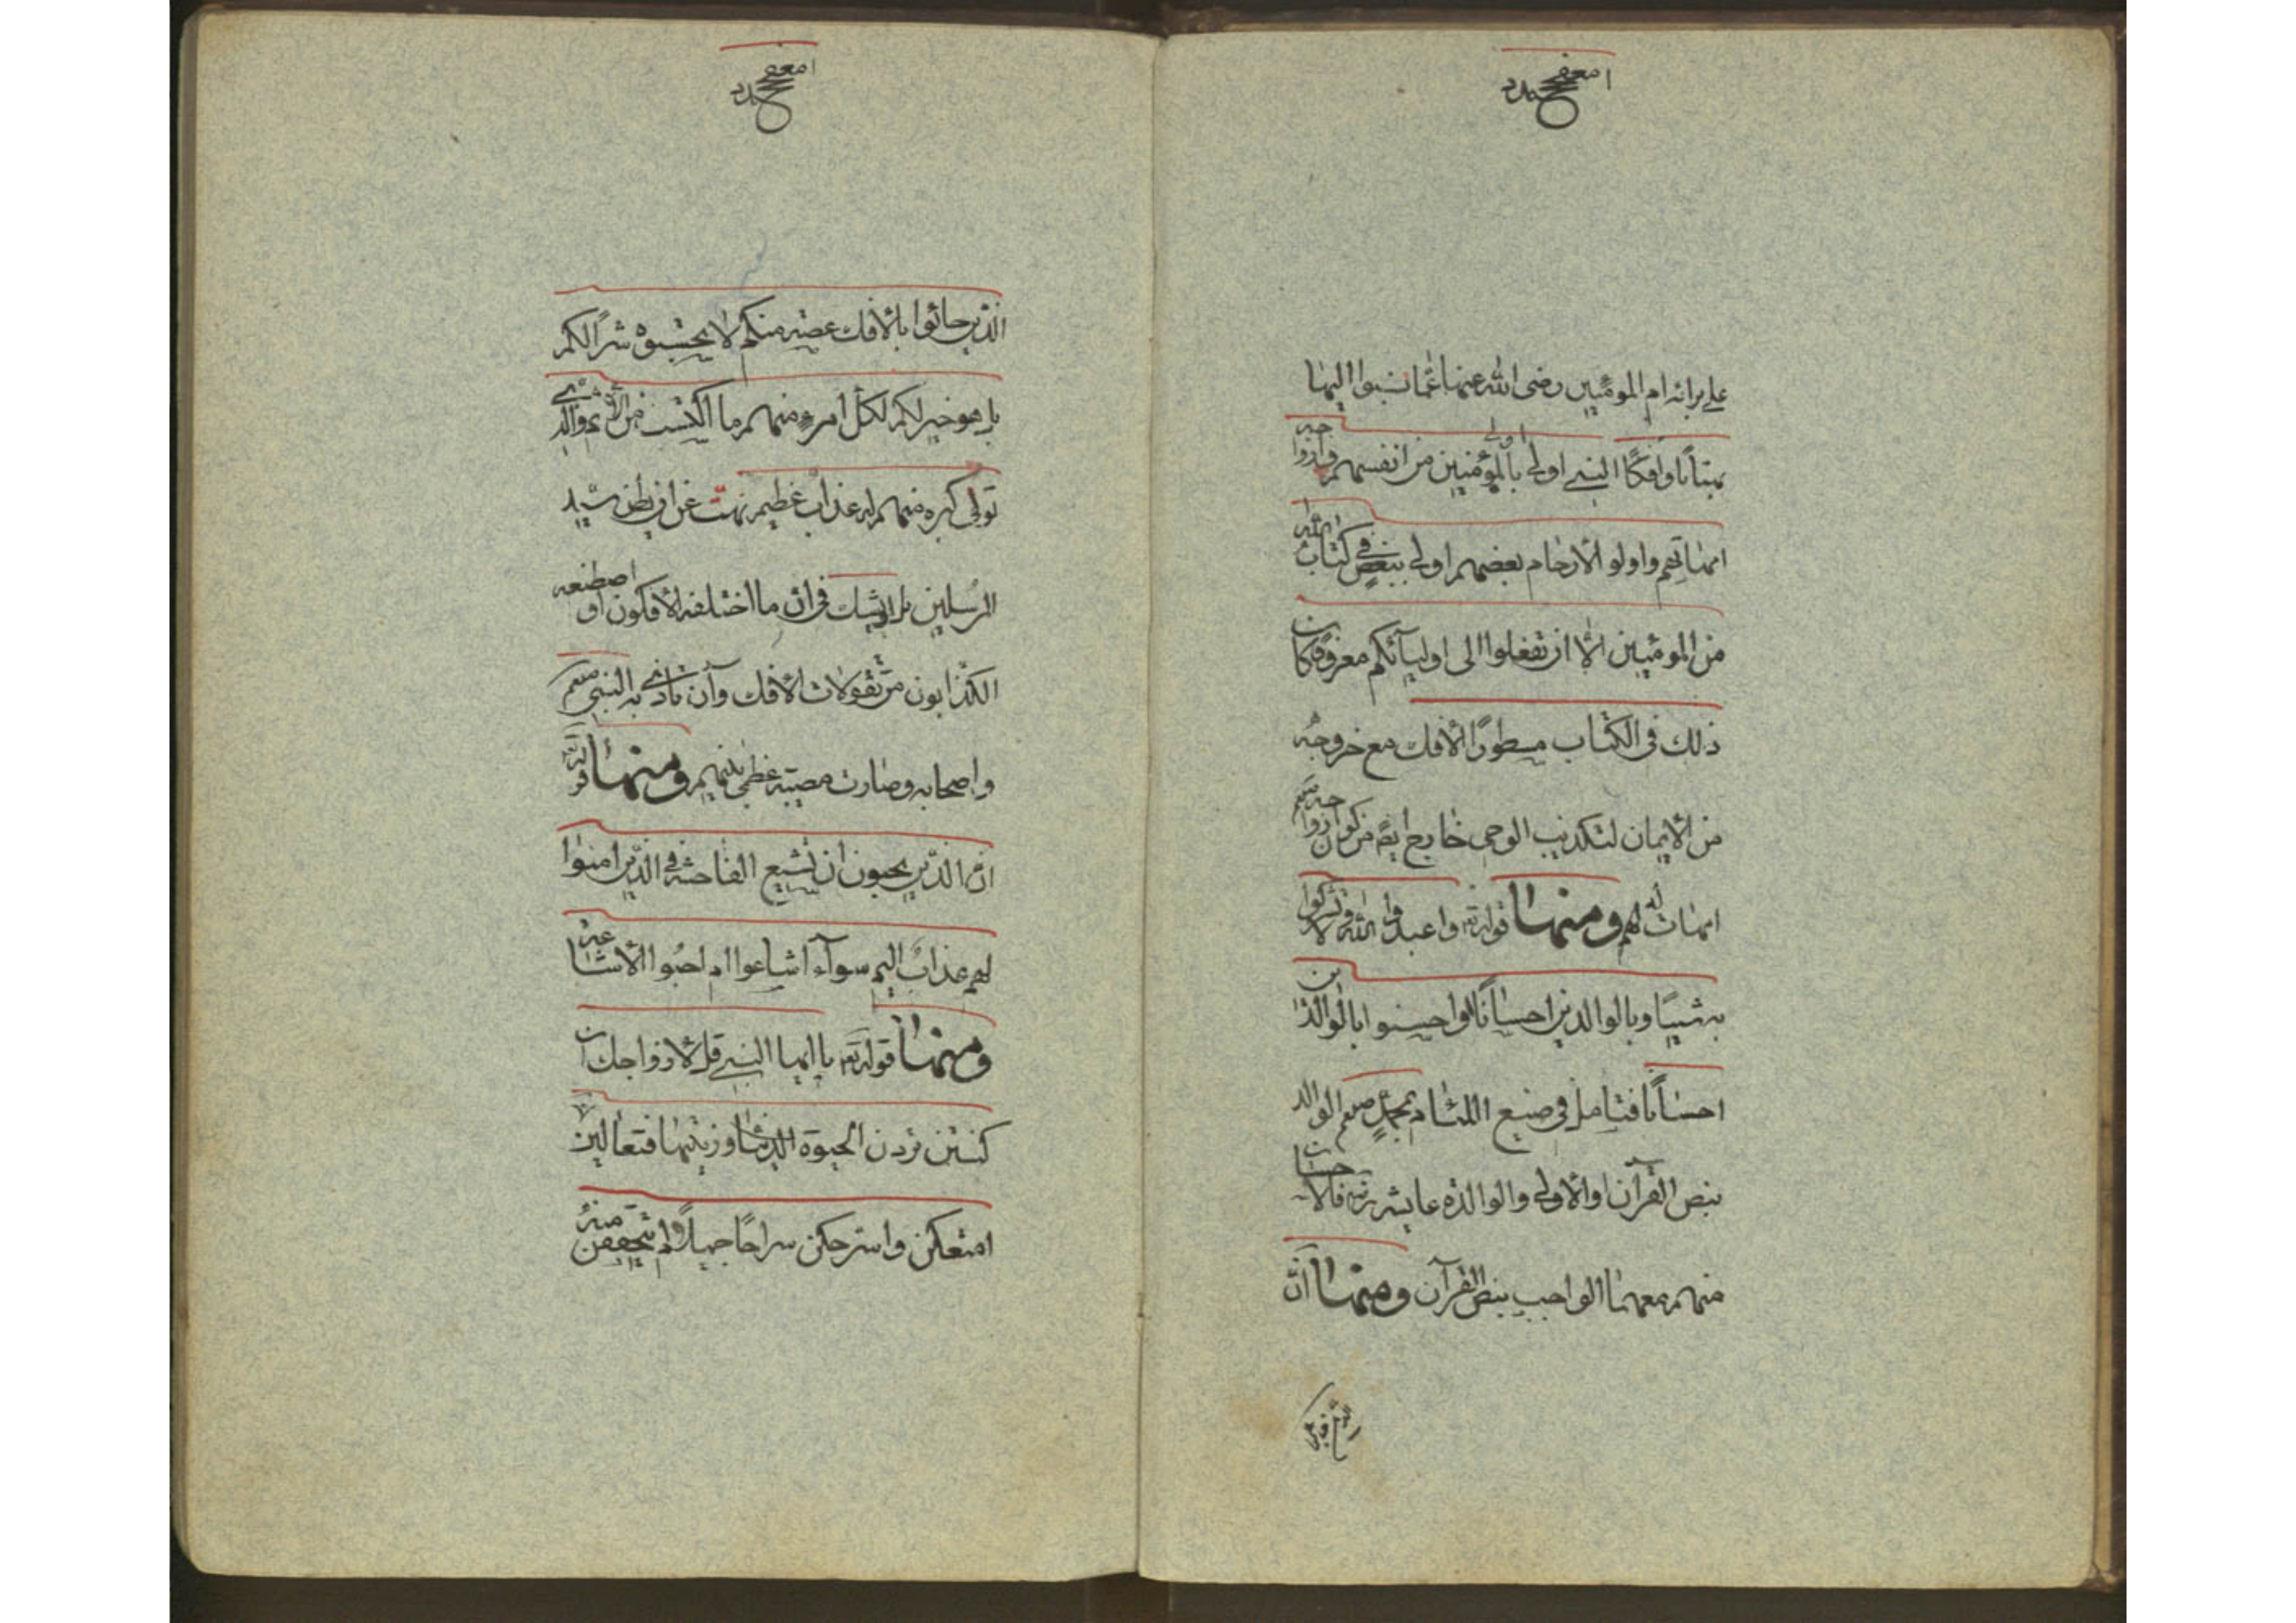 على برائة ام المومنين رضى الله عنها عما نسبوا اليها
بهتانا وافكا النبي اولى بالمؤمنين من انفسهم وازواجه
امهاتهم واولو الارحام بعضهم اولى ببعض في كتاب الله
من المومنين الا ان تفعلوا الى اوليآئكم معروفا كان
ذلك فى الكتاب مسطورا الافك مع خروجه
من الايمان لتكذيب الوحى خارج ايضا من كون ازواجه صلعم
امهات لهم ومنها قوله تع واعبدوا الله ولا تشركوا
به شيئا وبالوالدين احسانا او احسنوا بالوالدين
احسانا فتامل فى صنع اللئام بمحمد صلعم الوالد
بنص القرآن والاولى والوالدة عايشه رضه فالاحسان
منهم معهما الواجب بنص القرآن ومنها ان
الذين جائوا بالافك عصبة منكم لا تحسبوه شرا لكم
بل هو خير لكم لكل امرء منهم ما اكتسب من الاثم والذى
تولى كبره منهم له عذاب عظيم
المرسلين بل اشك فى ان ما اختلفه الافكون او اصطنعه
الكذابون من تقولات الافك وآن تأذى به النبى صلعم
واصحابه وصارت مصيبة عظمى بينهم ومنها قوله تع
ان الذين يحبون ان تشيع الفاحشة فى الذين امنوا
لهم عذاب اليم سوآء اشاعوا ام احبوا الاشاعة
ومنها قوله تع يا ايها النبي قل لازواجك ان
كنتن تردن الحيوة الدنيا وزينتها فتعالين
امتعكن واسرحكن سراحا جميلا ولم يتحقق منه